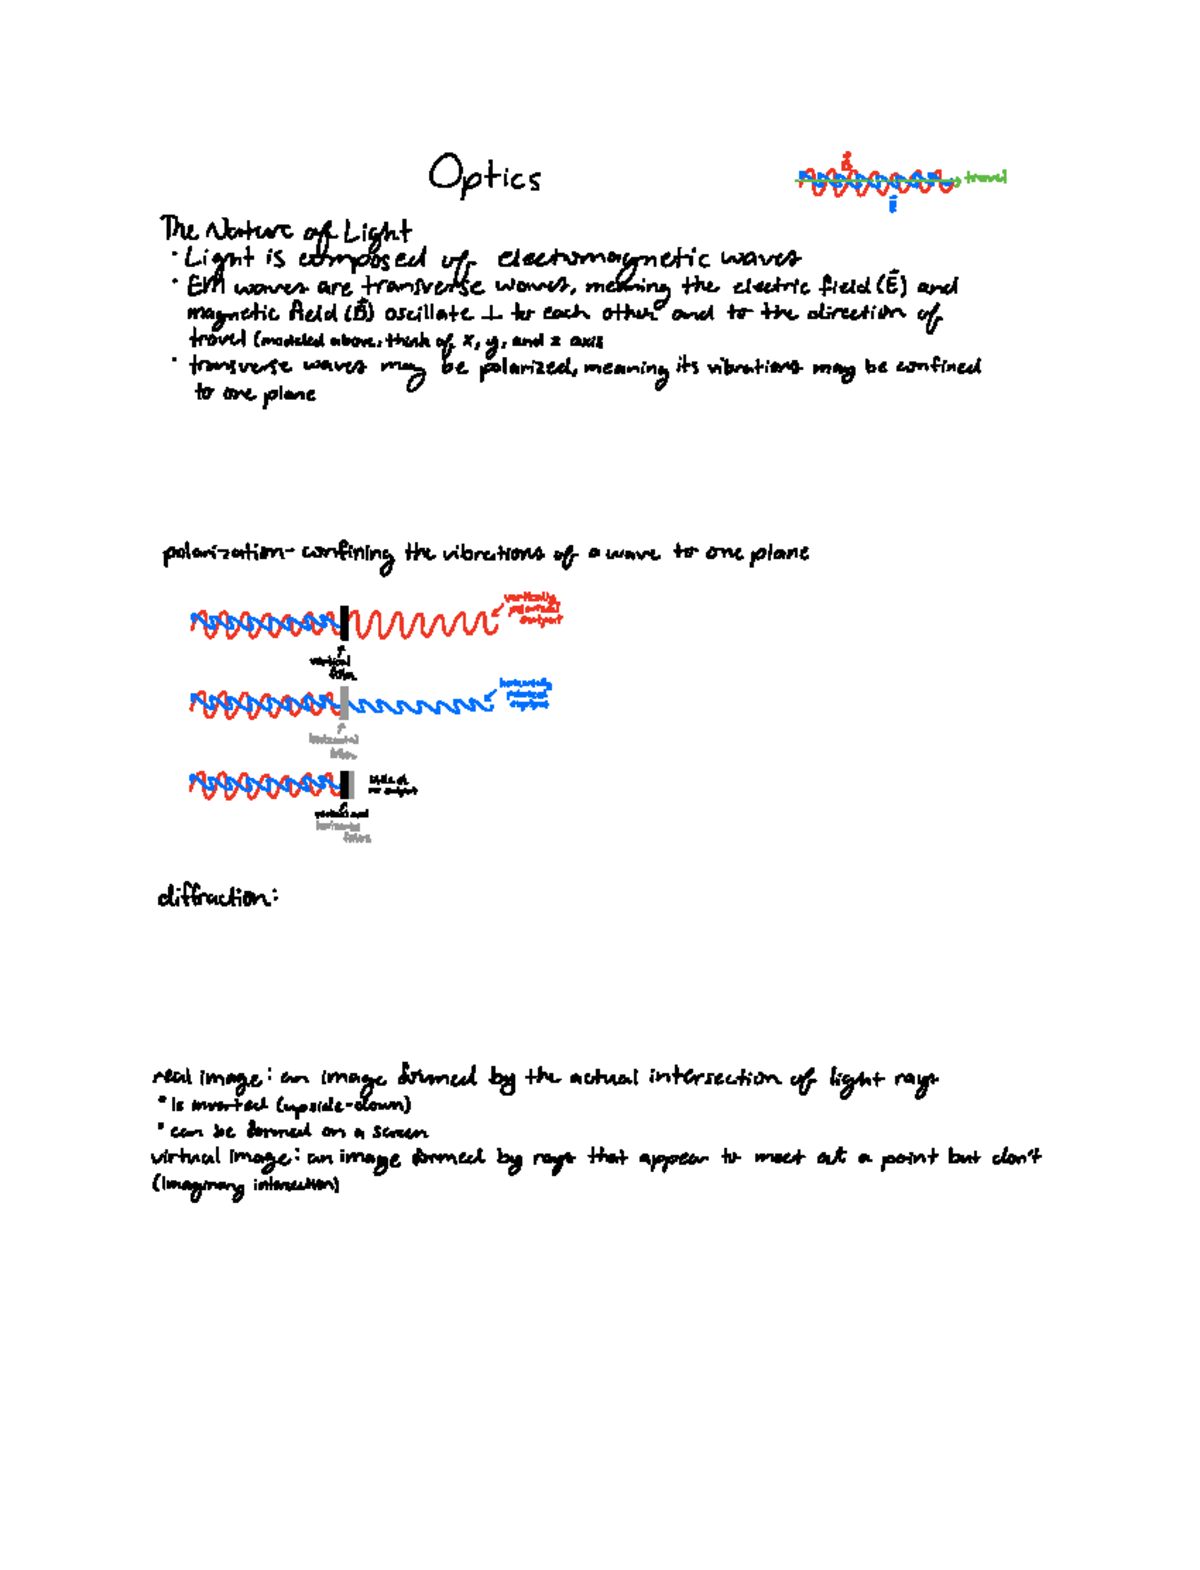 Optics
travel
The Nature of Light
· Light is composed of electromagnetic waves
· EM waves are transverse waves, meaning the electric field (E⃗) and
magnetic field (B⃗) oscillate ⊥ to each other and to the direction of
travel (modeled above, think of x, y, and z axis
· transverse waves may be polarized, meaning its vibrations may be confined
to one plane
polarization- confining the vibrations of a wave to one plane
vertically
polarized
output
vertical
horizontally
polarized
output
horizontal
vertical and
horizontal
diffraction:
real image: an image formed by the actual intersection of light rays
· is inverted (upside-down)
· can be formed on a screen
virtual image: an image formed by rays that appear to meet at a point but don't
(imaginary intersection)